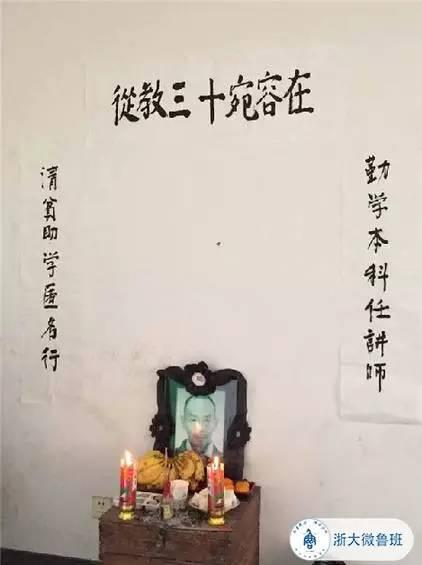 從教三十宛容在
勤学本科任讲师
清贫助学匿名行
浙大微鲁班